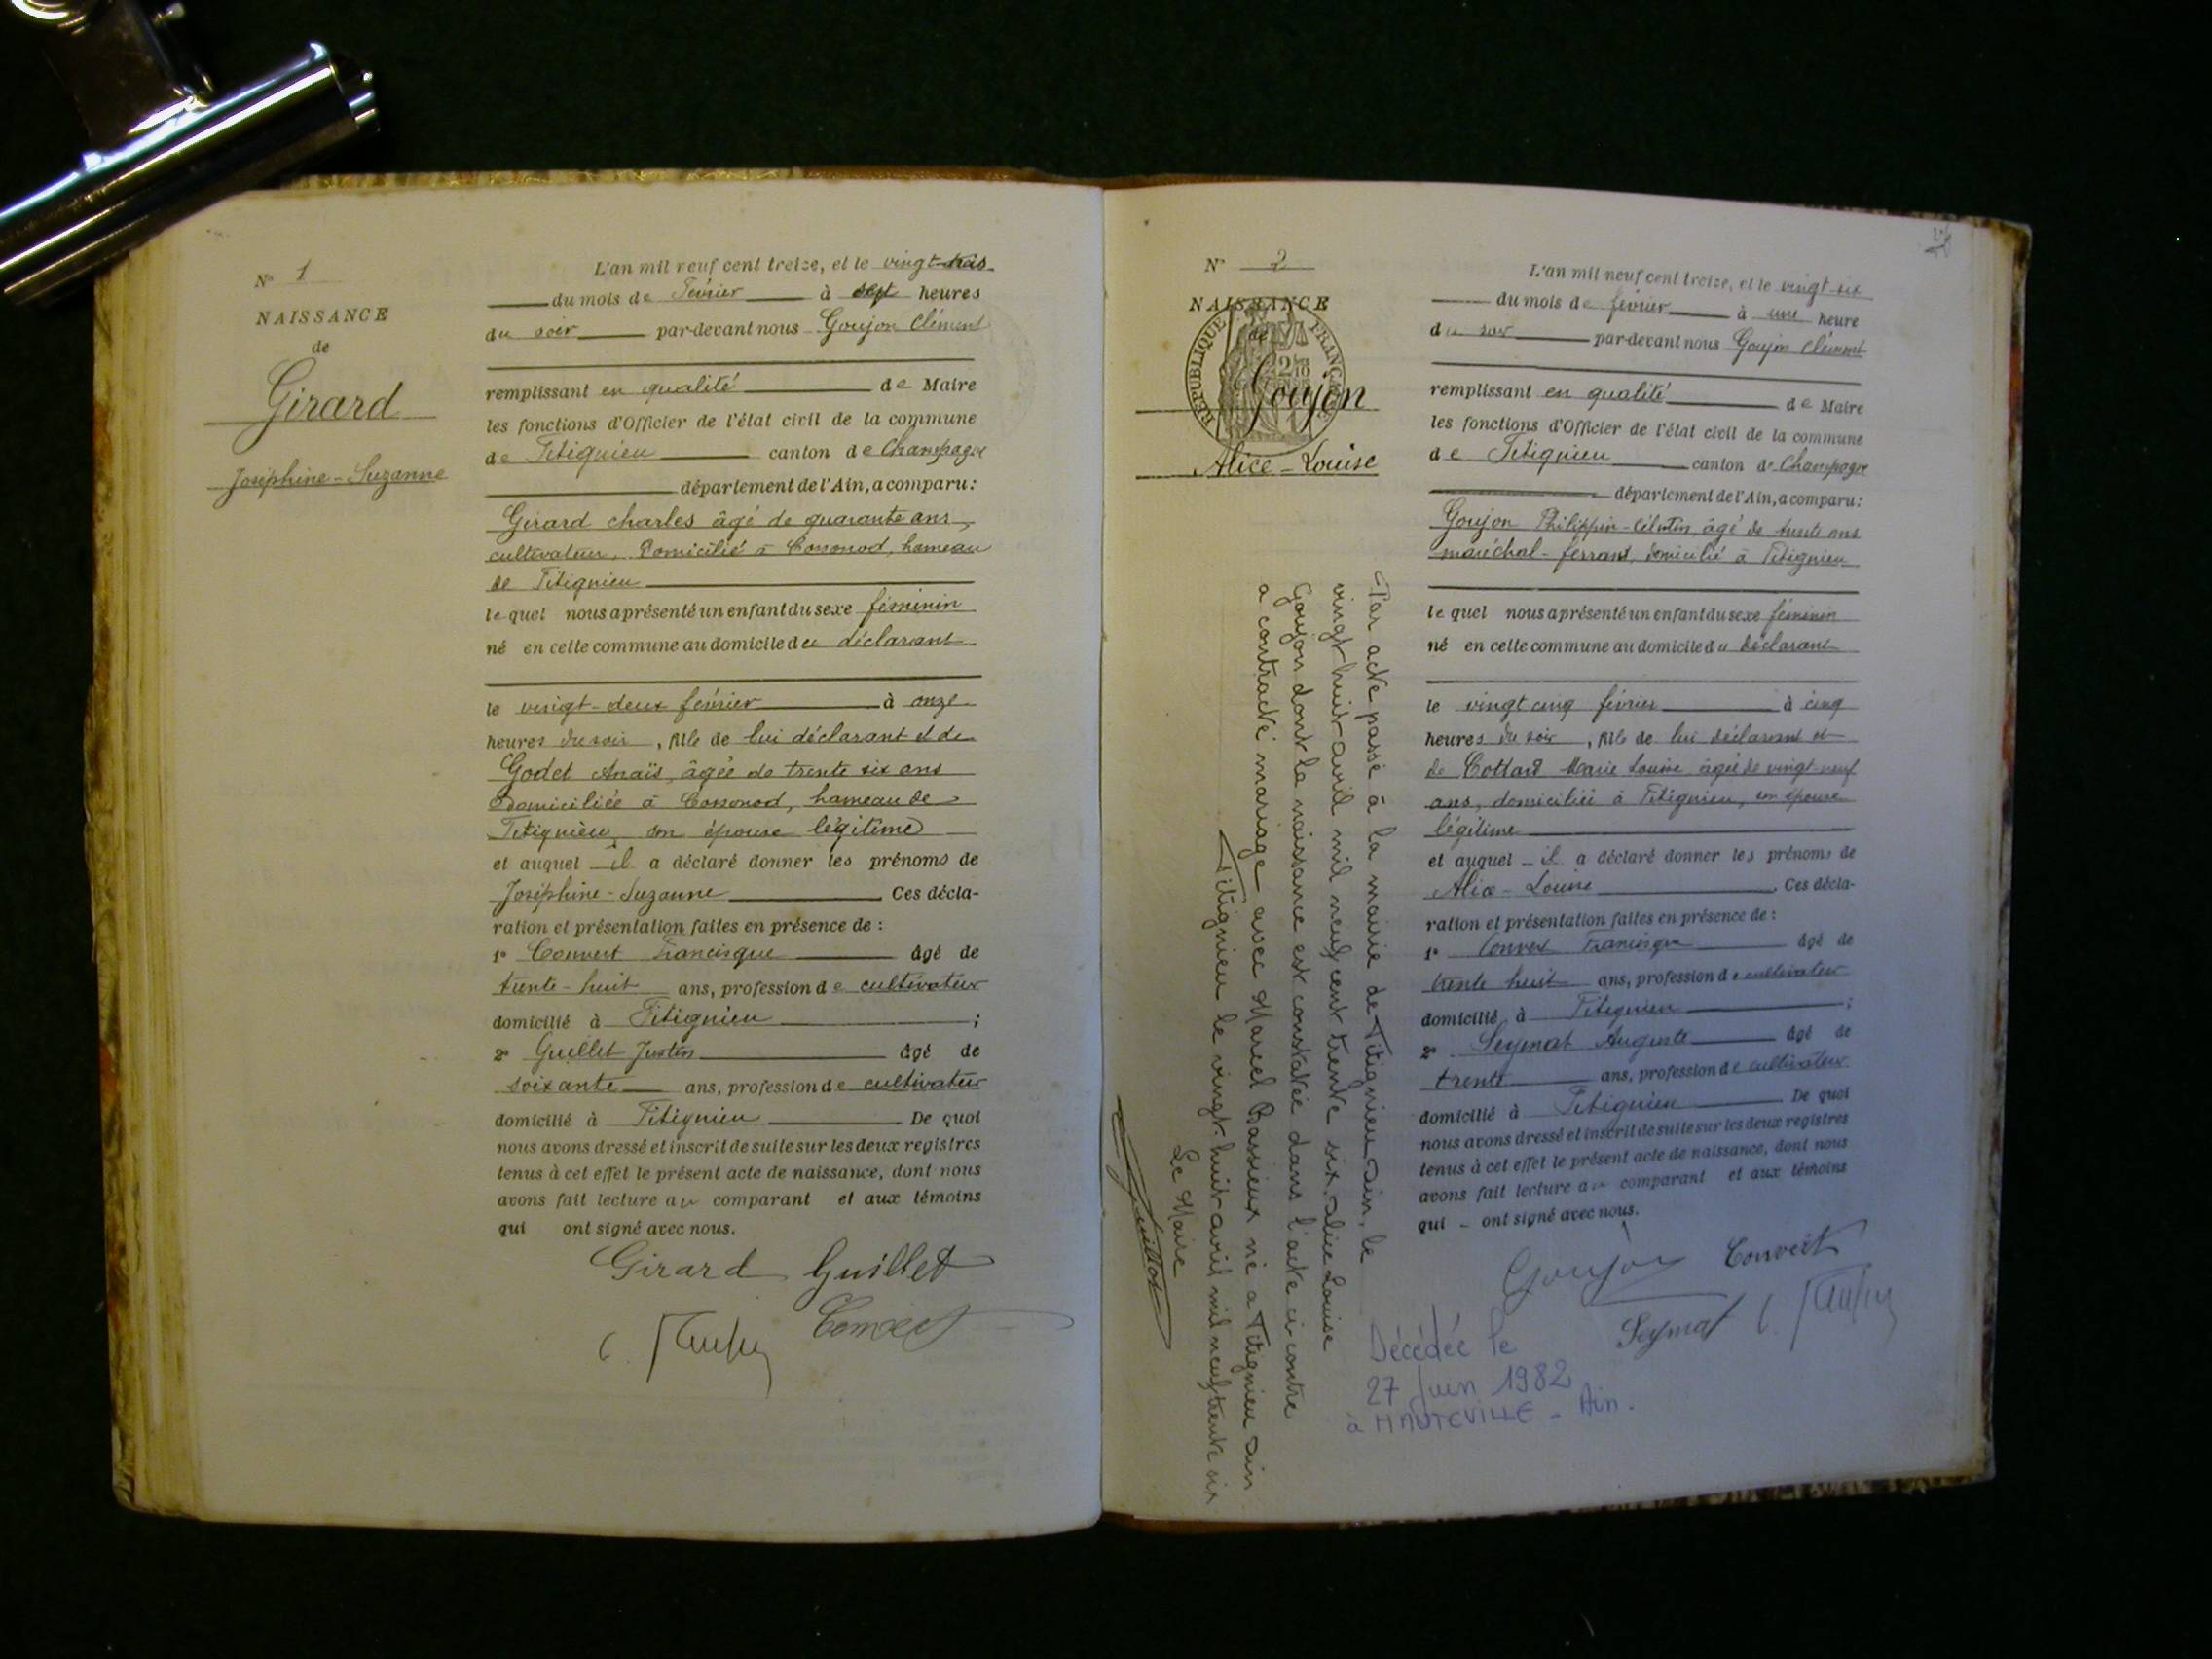 N° 1
NAISSANCE
de
Girard
Joséphine-Suzanne
L'an mil neuf cent treize, et le vingt-trois
du mois de Février à sept heures
du soir par-devant nous Goujon Clément
remplissant en qualité de Maire
les fonctions d'Officier de l'état civil de la commune
de canton de Champagne
département de l'Ain, a comparu:
Girard charles âgé de quarante ans,
cultivateur, domicilié à hameau
de
lequel nous a présenté un enfant du sexe féminin
né en cette commune au domicile du déclarant
le vingt-deux février à onze
heures du soir, fille de lui déclarant et de
Godet Anaïs, âgée de trente six ans
domiciliée à hameau de
son épouse légitime
et auquel il a déclaré donner les prénoms de
Joséphine-Suzanne Ces décla-
ration et présentation faites en présence de:
1° Convert Francisque âgé de
trente-huit ans, profession de cultivateur
domicilié à ;
2° Guillet Justin âgé de
soixante ans, profession de cultivateur
domicilié à De quoi
nous avons dressé et inscrit de suite sur les deux registres
tenus à cet effet le présent acte de naissance, dont nous
avons fait lecture au comparant et aux témoins
qui ont signé avec nous.
Girard Guillet
Convert
N° 2
NAISSANCE
de
RÉPUBLIQUE FRANÇAISE
Goujon
Alice-Louise
L'an mil neuf cent treize, et le vingt-six
du mois de février à une heure
du soir par-devant nous Goujon Clément
remplissant en qualité de Maire
les fonctions d'Officier de l'état civil de la commune
de canton de Champagne
département de l'Ain, a comparu:
Goujon Philippin-Célestin âgé de trente ans
maréchal-ferrant, domicilié à
lequel nous a présenté un enfant du sexe féminin
né en cette commune au domicile du déclarant
le vingt cinq février à cinq
heures du soir, fille de lui déclarant et
de Marie Louise âgée de vingt-neuf
ans, domiciliée à son épouse
légitime
et auquel il a déclaré donner les prénoms de
Alice-Louise. Ces décla-
ration et présentation faites en présence de:
1° Convert Francisque âgé de
trente huit ans, profession de cultivateur
domicilié à ;
2° Seymat Auguste âgé de
trente ans, profession de cultivateur
domicilié à De quoi
nous avons dressé et inscrit de suite sur les deux registres
tenus à cet effet le présent acte de naissance, dont nous
avons fait lecture au comparant et aux témoins
qui ont signé avec nous.
Goujon Convert
Seymat
Par acte passé à la mairie de Ain, le
vingt huit avril mil neuf cent trente six, Alice Louise
Goujon dont la naissance est constatée dans l'acte ci-contre
a contracté mariage avec Marcel né à Ain
le vingt-huit avril mil neuf trente six
Le Maire
Décédée le
27 juin 1982
à HAUTEVILLE - Ain.